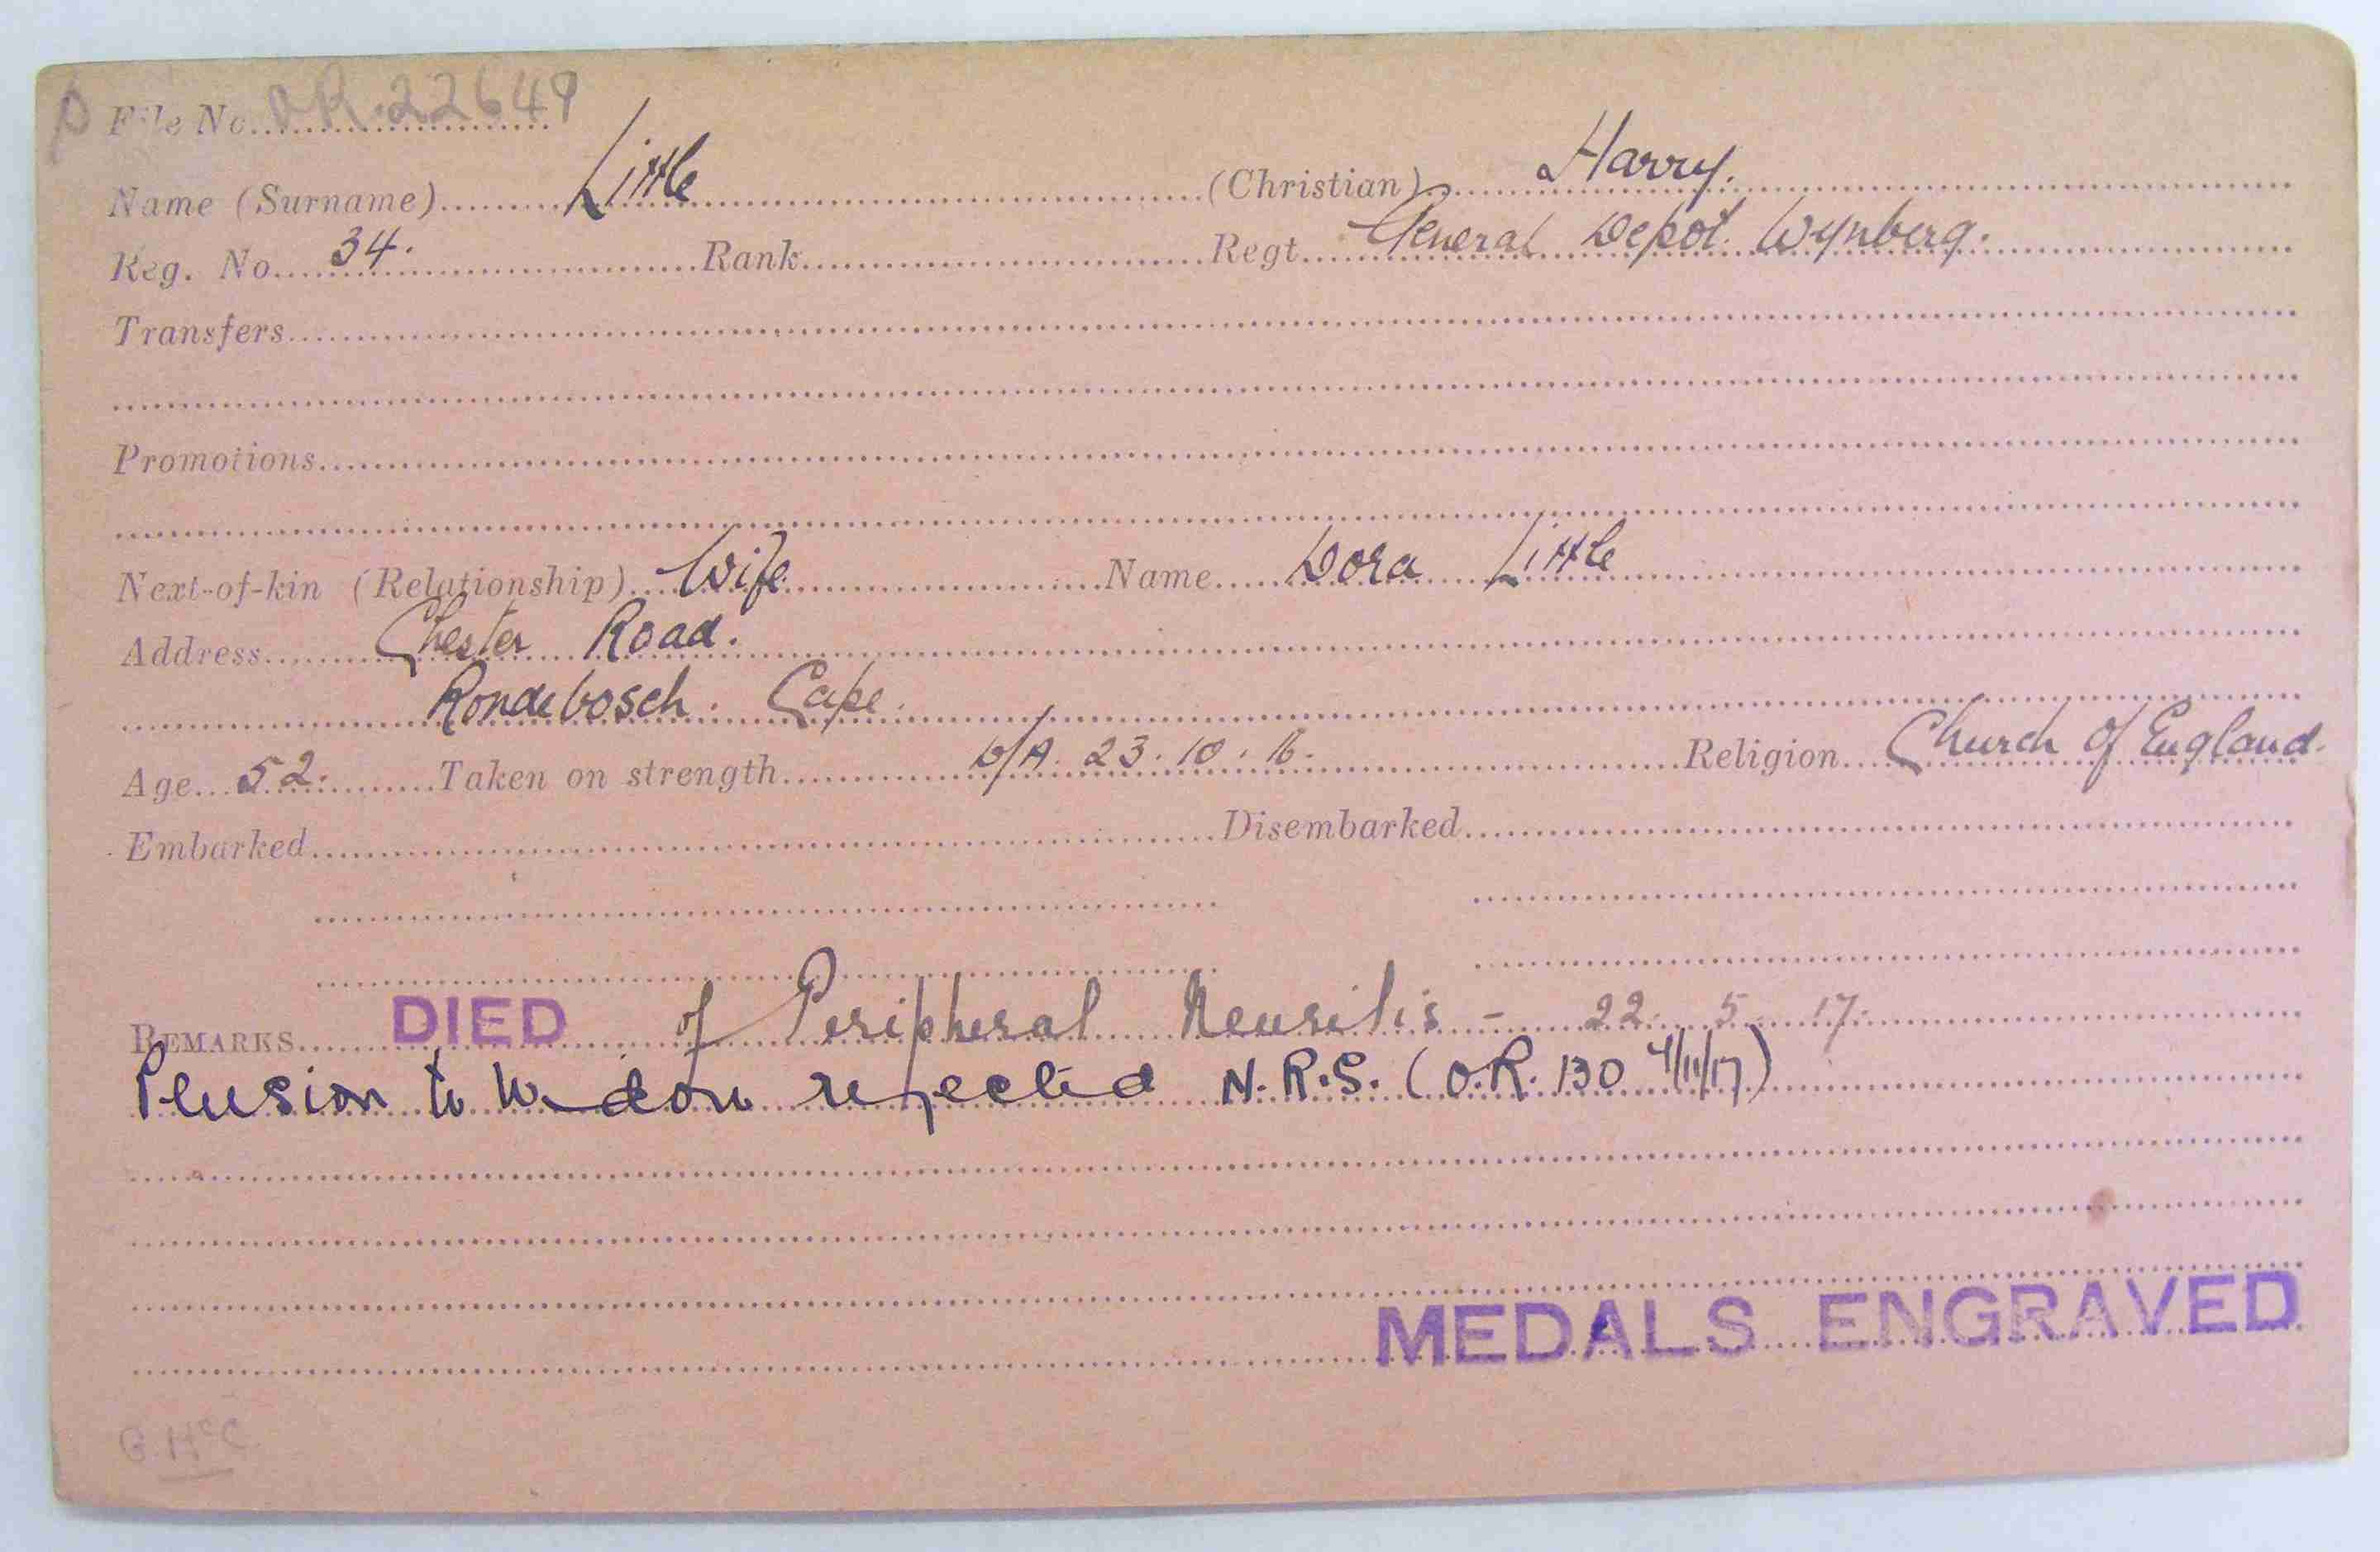 D File No. OR.22649
Name (Surname) Little (Christian) Harry.
Reg. No. 34. Rank Regt. General Depot. Wynberg.
Transfers
Promotions
Next-of-kin (Relationship) Wife Name Dora Little
Address Chester Road.
Rondebosch. Cape.
Age 52. Taken on strength D/A. 23.10.16. Religion Church of England.
Embarked Disembarked
REMARKS DIED of Peripheral Neuritis - 22. 5. 17.
Pension to Widow rejected N.R.S. (O.R. 130 4/11/17)
MEDALS ENGRAVED